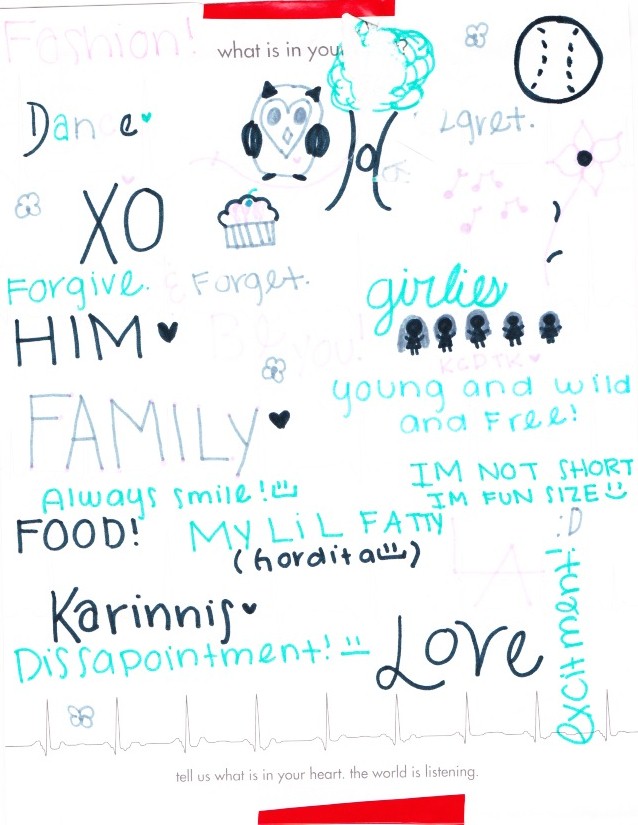 Fashion!
what is in you
?
Dance
XO
Forgive. & Forget.
girlies
HIM
Be you!
KGDTK
FAMILY
young and wild
and Free!
Always smile!
IM NOT SHORT
IM FUN SIZE
FOOD!
MY LiL FATTY
:D
(gordita)
LA
excitment!
Karinnis
Dissapointment!
Love
tell us what is in your heart. the world is listening.